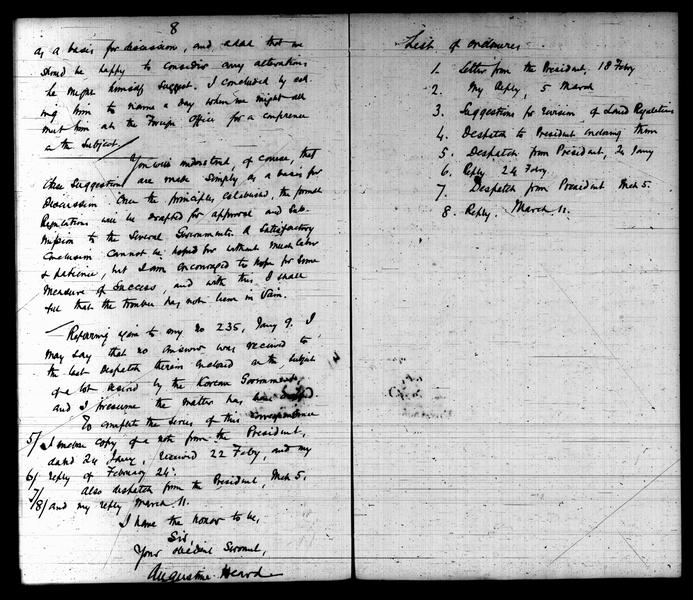 8
as a basis for discussion, and added that we
should be happy to consider any alterations
he might himself suggest. I concluded by ask
ing him to name a day when we might all
meet him at the Foreign Office for a conference
on the Subject.
You will understand, of course, that
these suggestions are made simply as a basis for
discussion. Once the principles established, the formal
Regulations will be drafted for approval and sub-
mission to the several Governments. A satisfactory
conclusion cannot be hoped for without much labor
& patience, but I am encouraged to hope for some
measure of success, and with this I shall
feel that the trouble has not been in vain.
Referring again to my no 235, Jany 9. I
may say that no answer was received to
the last despatch therein enclosed on the subject
of a lot desired by the Korean Government,
and I presume the matter has been
To complete the series of this correspondence
5/ I enclose copy of a note from the President,
dated 24 Jany, received 22 Feby, and my
6/ reply of February 24.
7/ also despatch from the President, Mch 5,
/8/ and my reply March 11.
I have the honor to be,
Sir,
Your obedient Servant,
Augustine Heard
List of enclosures.
1. Letter from the President, 18 Feby
2. My Reply, 5 March
3. Suggestions for revision of Land Regulations
4. Despatch to President enclosing them
5. Despatch from President, 24 Jany
6. Reply 24 Feby.
7. Despatch from President Mch 5.
8. Reply. March 11.